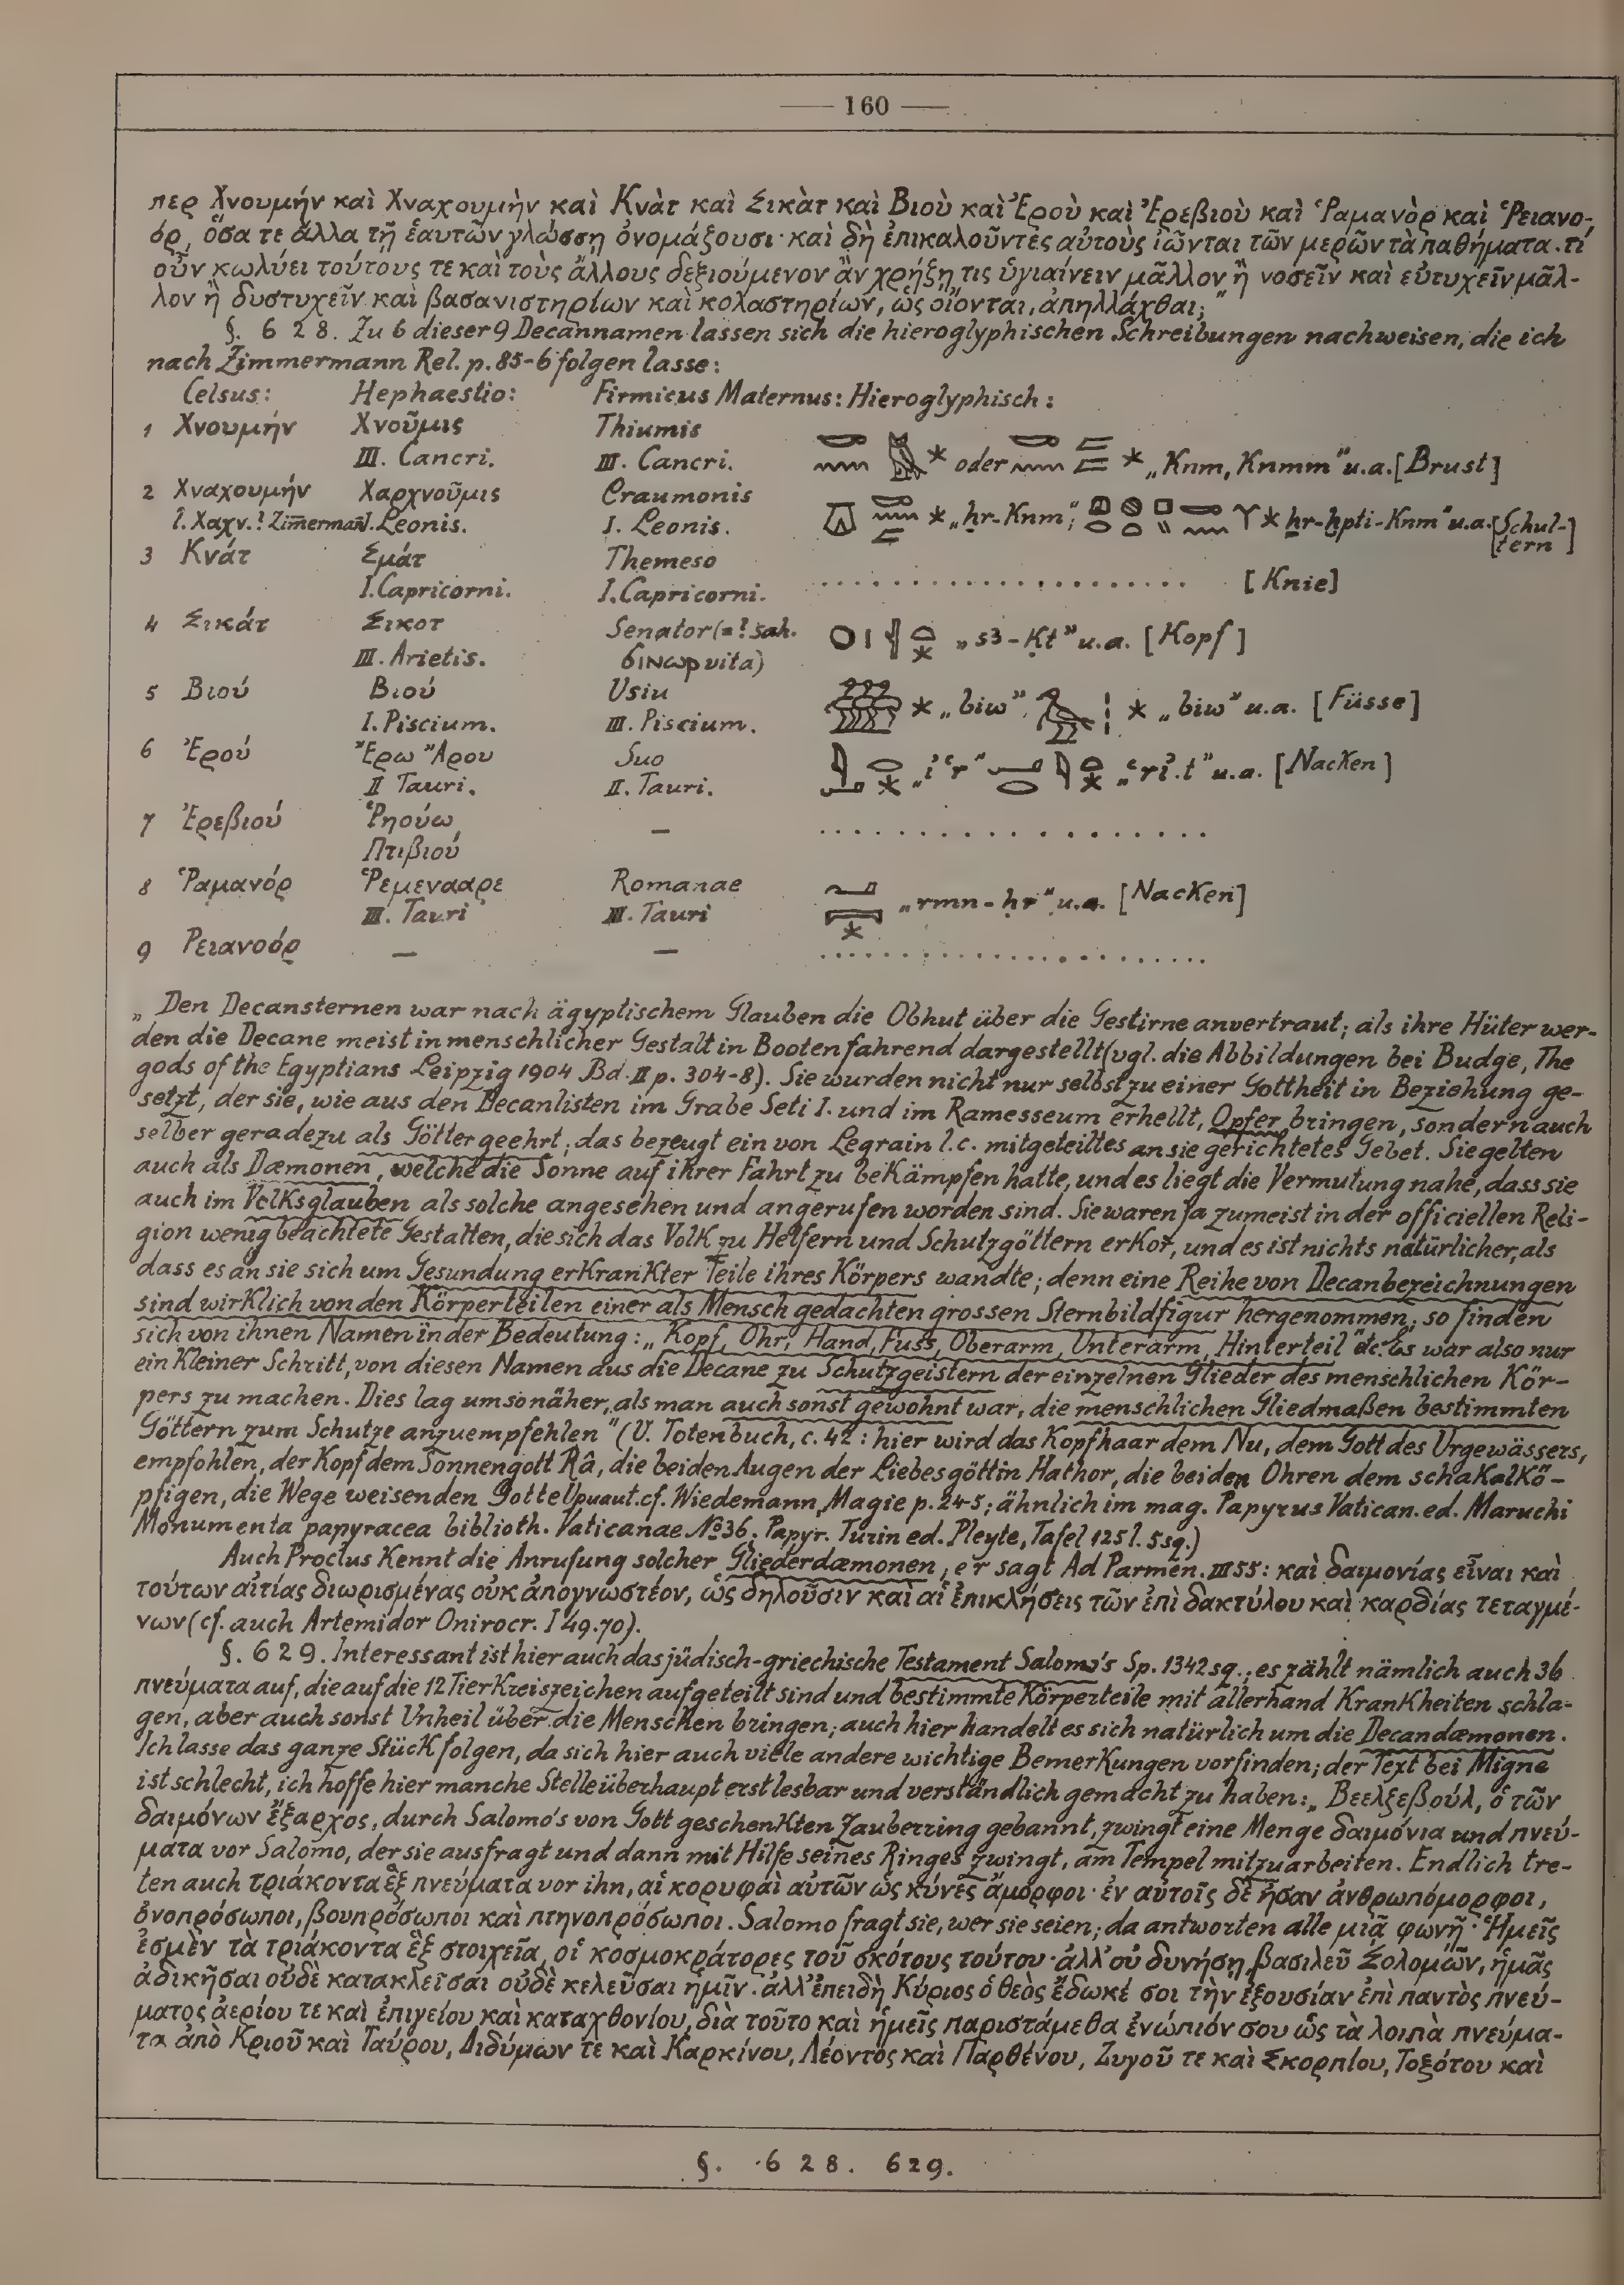 — 160 —
περ Χνουμήν καὶ Χναχουμὴν καὶ Κνὰτ καὶ Σικὰτ καὶ Βιοὺ καὶ Ἐροὺ καὶ Ἐρεβιοὺ καὶ Ῥαμανὸρ καὶ Ῥειανο-
όρ, ὅσα τε ἄλλα τῇ ἑαυτῶν γλώσσῃ ὀνομάζουσι· καὶ δὴ ἐπικαλοῦντες αὐτοὺς ἰῶνται τῶν μερῶν τὰ παθήματα. τί
οὖν κωλύει τούτους τε καὶ τοὺς ἄλλους δεξιούμενον ἂν χρήξῃ τις ὑγιαίνειν μᾶλλον ἢ νοσεῖν καὶ εὐτυχεῖν μᾶλ-
λον ἢ δυστυχεῖν καὶ βασανιστηρίων καὶ κολαστηρίων, ὡς οἴονται, ἀπηλλάχθαι;“
§. 628. Zu 6 dieser 9 Decannamen lassen sich die hieroglyphischen Schreibungen nachweisen, die ich
nach Zimmermann Rel. p. 85-6 folgen lasse:
Celsus: Hephaestio: Firmicus Maternus: Hieroglyphisch:
1 Χνουμήν Χνοῦμις Thiumis
III. Cancri. III. Cancri. oder „Knm, Knmm“ u.a. [Brust]
2 Χναχουμήν Χαρχνοῦμις Craumonis
l. Χαχν.? Zimerman I. Leonis. I. Leonis. „ḥr-Knm“; ḥr-ḫpti-Knm“ u.a. [Schul-
tern]
3 Κνάτ Σμάτ Themeso
I. Capricorni. I. Capricorni. . . . . . [Knie]
4 Σικάτ Σικοτ Senator (=? sah.
III. Arietis. ϭινωρ vita) „s3-Kt“ u.a. [Kopf]
5 Βιού Βιού Usiu
I. Piscium. III. Piscium. „biw“, „biw“ u.a. [Füsse]
6 Ἐρού Ἔρω Ἄρου Suo
II Tauri. II. Tauri. „i‘r“ „‘ri.t“ u.a. [Nacken]
7 Ἐρεβιού Ῥηούω, — . . . . .
Πτιβιού
8 Ῥαμανόρ Ῥεμενααρε Romanae
III. Tauri III. Tauri „rmn-ḥr“ u.a. [Nacken]
9 Ρειανοόρ — — . . . . .
„Den Decansternen war nach ägyptischem Glauben die Obhut über die Gestirne anvertraut; als ihre Hüter wer-
den die Decane meist in menschlicher Gestalt in Booten fahrend dargestellt (vgl. die Abbildungen bei Budge, The
gods of the Egyptians Leipzig 1904 Bd. II p. 304-8). Sie wurden nicht nur selbst zu einer Gottheit in Beziehung ge-
setzt, der sie, wie aus den Decanlisten im Grabe Seti I. und im Ramesseum erhellt, Opfer bringen, sondern auch
selber geradezu als Götter geehrt; das bezeugt ein von Legrain l.c. mitgeteiltes an sie gerichtetes Gebet. Sie gelten
auch als Dæmonen, welche die Sonne auf ihrer Fahrt zu bekämpfen hatte, und es liegt die Vermutung nahe, dass sie
auch im Volksglauben als solche angesehen und angerufen worden sind. Sie waren ja zumeist in der officiellen Reli-
gion wenig beachtete Gestalten, die sich das Volk zu Helfern und Schutzgöttern erkor, und es ist nichts natürlicher, als
dass es an sie sich um Gesundung erkrankter Teile ihres Körpers wandte; denn eine Reihe von Decanbezeichnungen
sind wirklich von den Körperteilen einer als Mensch gedachten grossen Sternbildfigur hergenommen; so finden
sich von ihnen Namen in der Bedeutung: „Kopf, Ohr, Hand, Fuss, Oberarm, Unterarm, Hinterteil“ etc. Es war also nur
ein kleiner Schritt, von diesen Namen aus die Decane zu Schutzgeistern der einzelnen Glieder des menschlichen Kör-
pers zu machen. Dies lag umso näher, als man auch sonst gewohnt war, die menschlichen Gliedmaßen bestimmten
Göttern zum Schutze anzuempfehlen“ (V. Totenbuch, c. 42: hier wird das Kopfhaar dem Nu, dem Gott des Urgewässers,
empfohlen, der Kopf dem Sonnengott Râ, die beiden Augen der Liebesgöttin Hathor, die beiden Ohren dem schakalkö-
pfigen, die Wege weisenden Gotte Upuaut. cf. Wiedemann, Magie p. 24-5; ähnlich im mag. Papyrus Vatican. ed. Maruchi
Monumenta papyracea biblioth. Vaticanae No 36. Papyr. Turin ed. Pleyte, Tafel 125 l. 5 sq.)
Auch Proclus kennt die Anrufung solcher Gliederdæmonen, er sagt Ad Parmen. III 55: καὶ δαιμονίας εἶναι καὶ
τούτων αἰτίας διωρισμένας οὐκ ἀπογνωστέον, ὡς δηλοῦσιν καὶ αἱ ἐπικλήσεις τῶν ἐπὶ δακτύλου καὶ καρδίας τεταγμέ-
νων (cf. auch Artemidor Onirocr. I 49.70).
§. 629. Interessant ist hier auch das jüdisch-griechische Testament Salomo's Sp. 1342 sq.; es zählt nämlich auch 36
πνεύματα auf, die auf die 12 Tierkreiszeichen aufgeteilt sind und bestimmte Körperteile mit allerhand Krankheiten schla-
gen, aber auch sonst Unheil über die Menschen bringen; auch hier handelt es sich natürlich um die Decandæmonen.
Ich lasse das ganze Stück folgen, da sich hier auch viele andere wichtige Bemerkungen vorfinden; der Text bei Migne
ist schlecht, ich hoffe hier manche Stelle überhaupt erst lesbar und verständlich gemacht zu haben: „Βεελζεβούλ, ὁ τῶν
δαιμόνων ἔξαρχος, durch Salomo's von Gott geschenkten Zauberring gebannt, zwingt eine Menge δαιμόνια und πνεύ-
ματα vor Salomo, der sie ausfragt und dann mit Hilfe seines Ringes zwingt, am Tempel mitzuarbeiten. Endlich tre-
ten auch τριάκοντα ἓξ πνεύματα vor ihn, αἱ κορυφαὶ αὐτῶν ὡς κύνες ἄμορφοι· ἐν αὐτοῖς δὲ ἦσαν ἀνθρωπόμορφοι,
ὀνοπρόσωποι, βουπρόσωποι καὶ πτηνοπρόσωποι. Salomo fragt sie, wer sie seien; da antworten alle μιᾷ φωνῇ· Ἡμεῖς
ἐσμὲν τὰ τριάκοντα ἓξ στοιχεῖα, οἱ κοσμοκράτορες τοῦ σκότους τούτου· ἀλλ' οὐ δυνήσῃ, βασιλεῦ Σολομῶν, ἡμᾶς
ἀδικῆσαι οὐδὲ κατακλεῖσαι οὐδὲ κελεῦσαι ἡμῖν· ἀλλ' ἐπειδὴ Κύριος ὁ θεὸς ἔδωκέ σοι τὴν ἐξουσίαν ἐπὶ παντὸς πνεύ-
ματος ἀερίου τε καὶ ἐπιγείου καὶ καταχθονίου, διὰ τοῦτο καὶ ἡμεῖς παριστάμεθα ἐνώπιόν σου ὡς τὰ λοιπὰ πνεύμα-
τα ἀπὸ Κριοῦ καὶ Ταύρου, Διδύμων τε καὶ Καρκίνου, Λέοντος καὶ Παρθένου, Ζυγοῦ τε καὶ Σκορπίου, Τοξότου καὶ
§. 628. 629.